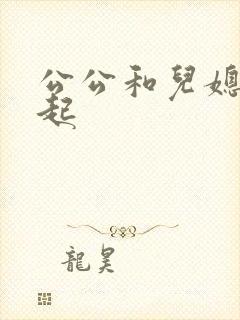 公公和兒媳
起
龍昊